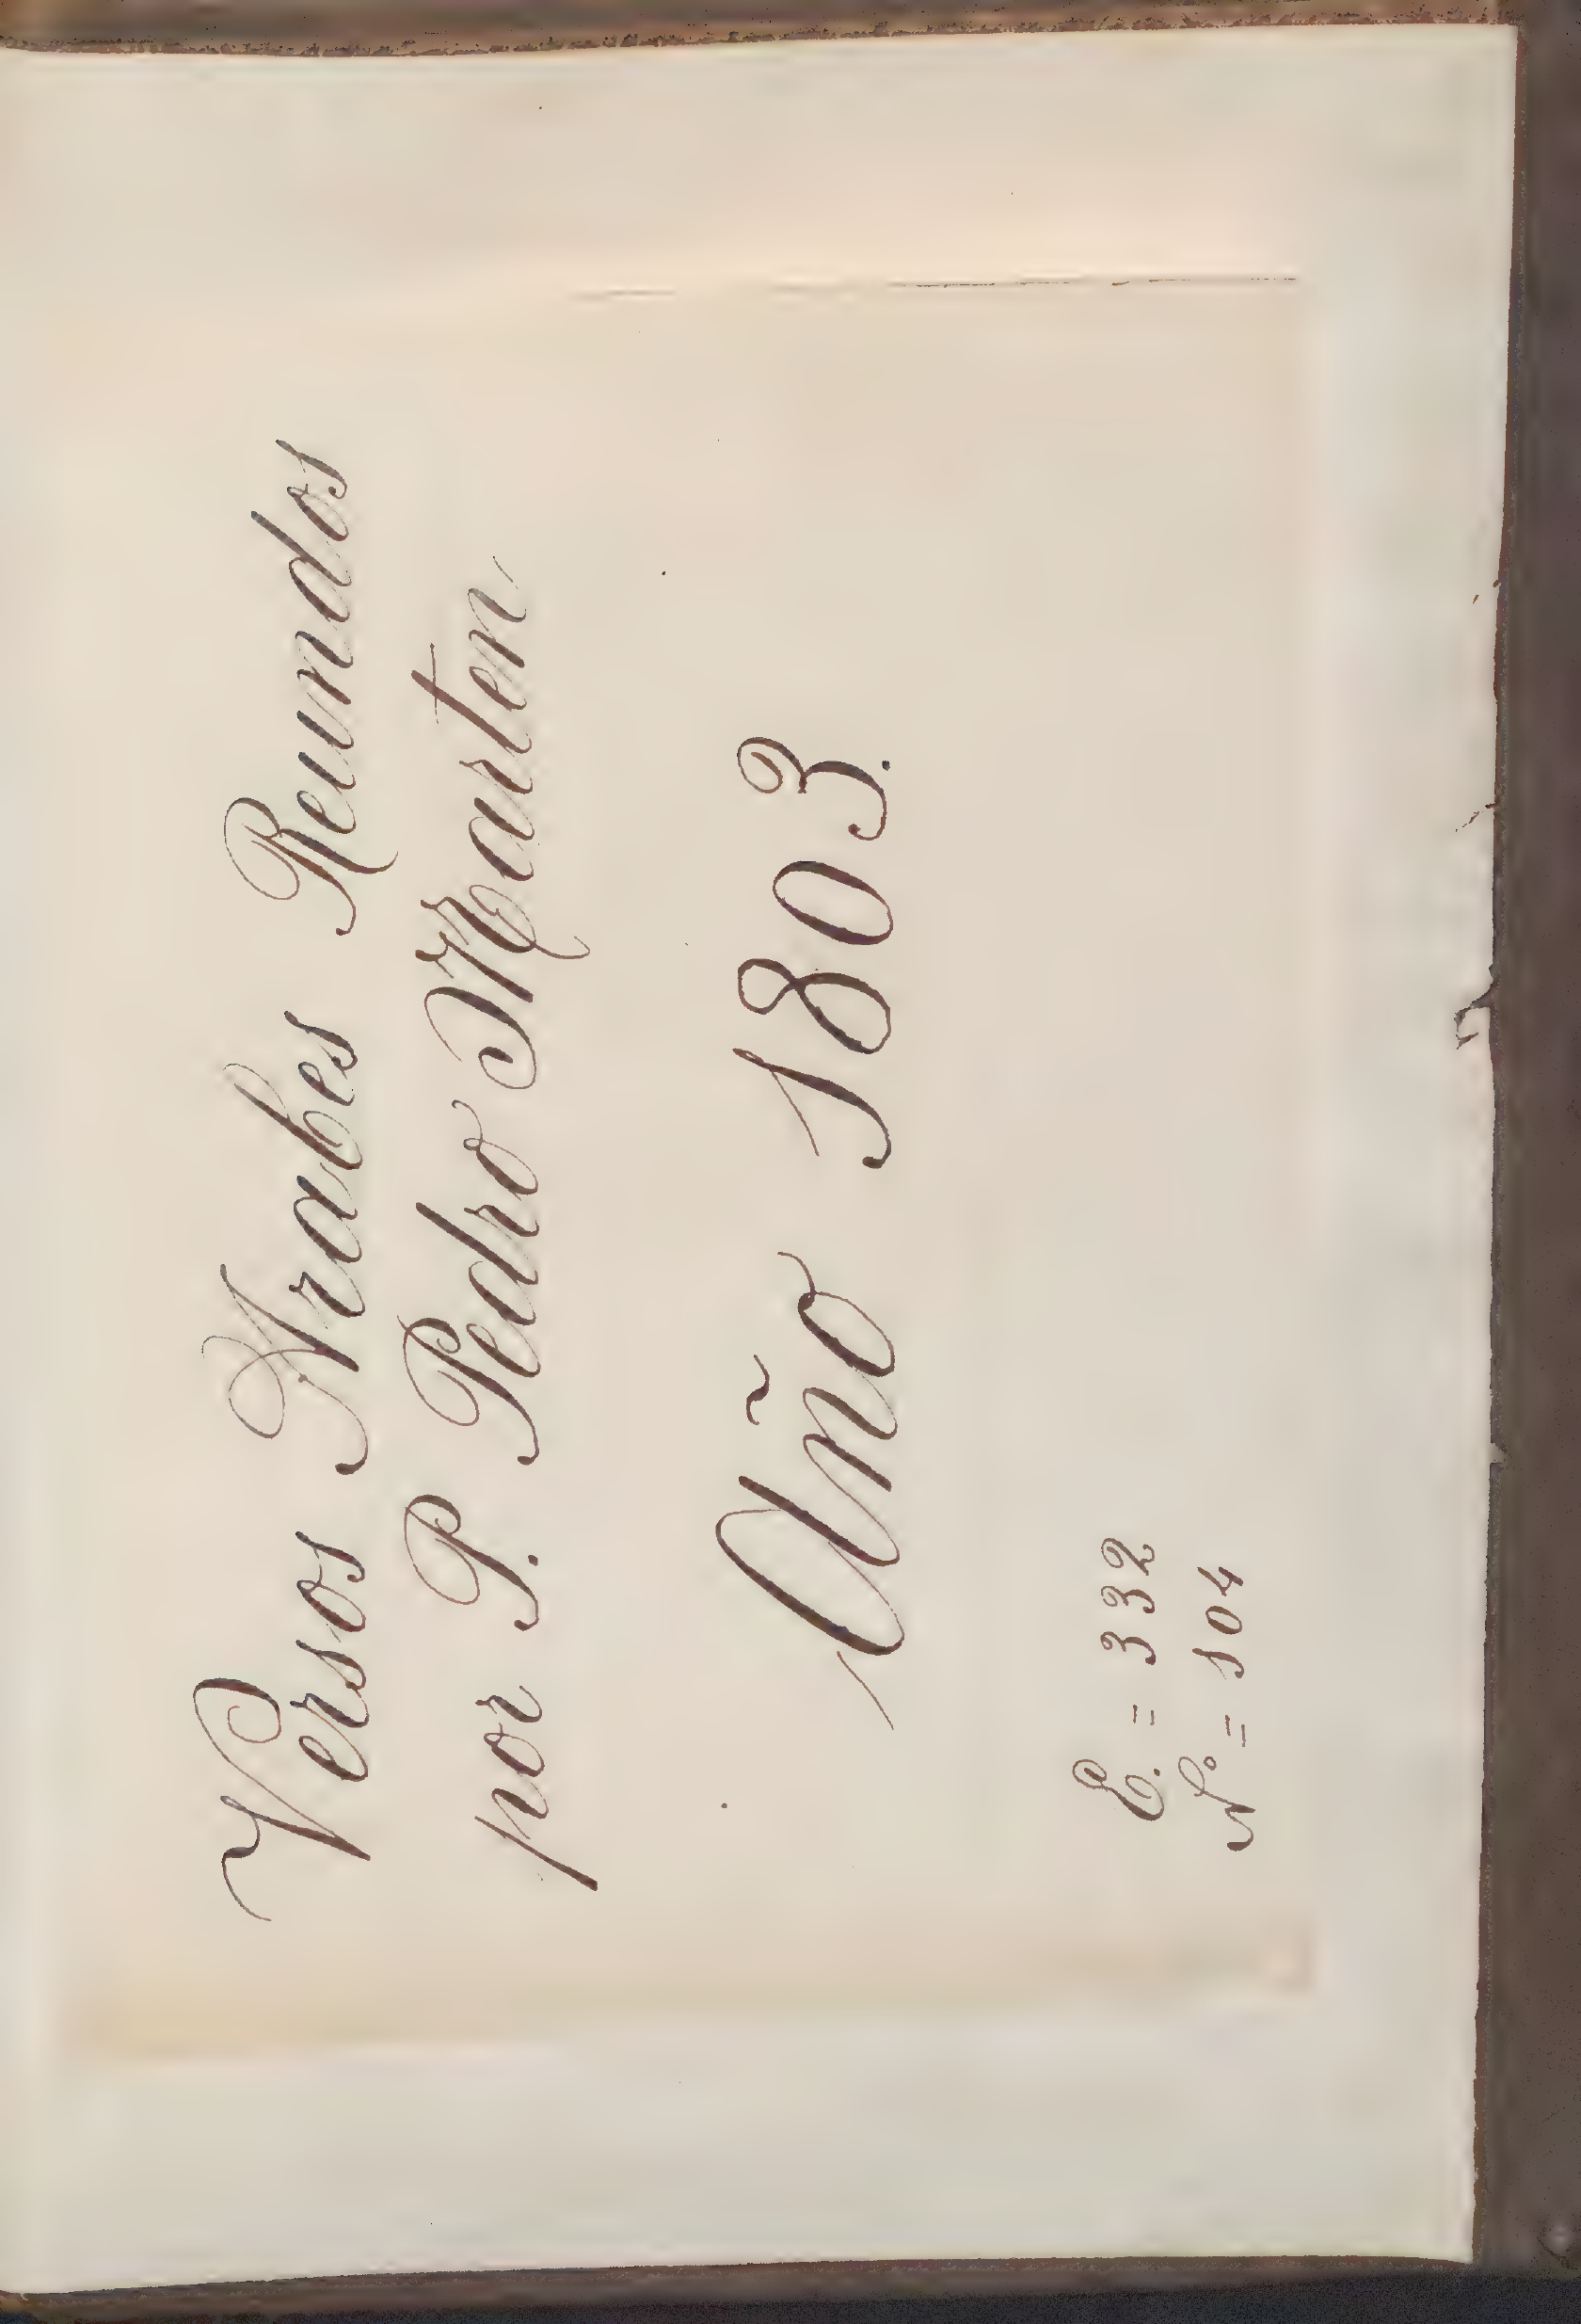 Versos Arabes Reunidos
por P. Pedro Marten
Año 1803.
E. = 332
N.º = 104